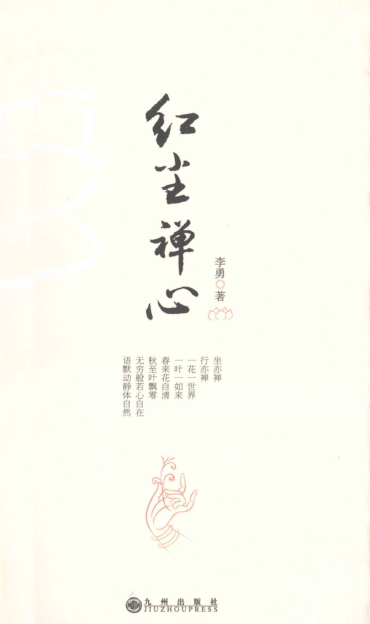 红尘禅心
李勇 著
坐亦禅
行亦禅
一花一世界
一叶一如来
春来花自清
秋至叶飘零
无穷般若心自在
语默动静体自然
九州出版社
JIUZHOUPRESS